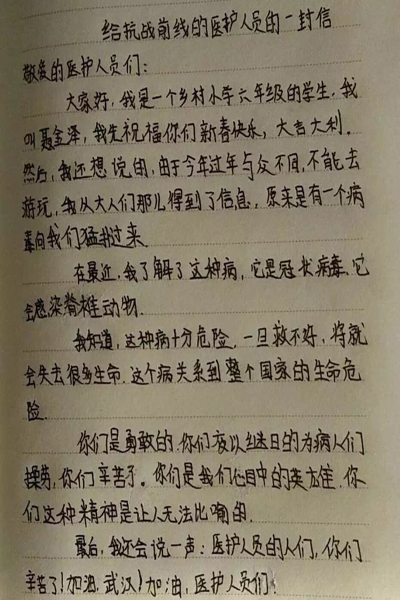 给抗战前线的医护人员的一封信
敬爱的医护人员们:
大家好,我是一个乡村小学六年级的学生,我
叫聂金泽,我先祝福你们新春快乐,大吉大利。
然后,我还想说的,由于今年过年与众不同,不能去
游玩,我从大人们那儿得到了信息,原来是有一个病
毒向我们猛扑过来.
在最近,我了解了这种病,它是冠状病毒,它
会感染脊椎动物.
我知道,这种病十分危险,一旦救不好,将就
会失去很多生命.这个病关系到整个国家的生命危
险.
你们是勇敢的.你们夜以继日的为病人们
操劳,你们辛苦了。你们是我们心目中的英雄.你
们这种精神是让人无法比喻的.
最后,我还会说一声:医护人员的人们,你们
辛苦了!加油,武汉!加油,医护人员们!